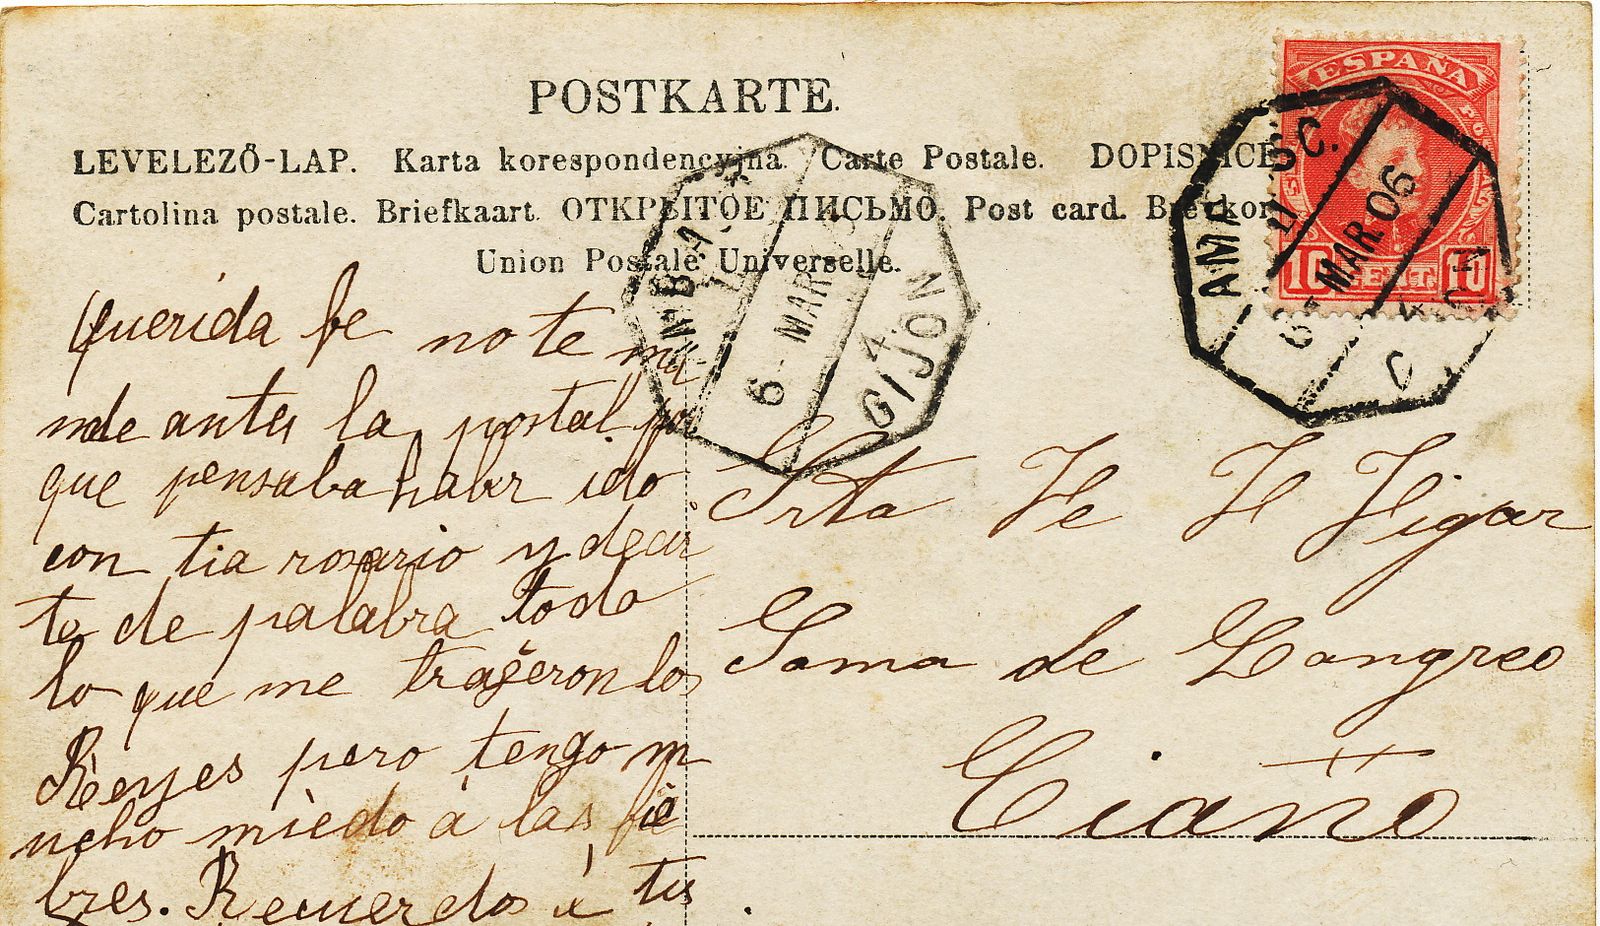 POSTKARTE.
LEVELEZŐ-LAP. Karta korespondencyjna. Carte Postale. DOPISNICE
Cartolina postale. Briefkaart. ОТКРЫТОЕ ПИСЬМО. Post card. Brevkort
Union Postale Universelle.
ESPAÑA
10 CENT. 10
AMB
6 - MAR
4
GIJON
AMB
MAR 06
Querida fe no te ma-
nde antes la postal por
que pensaba haber ido
con tia rosario y decir
te de palabra todo
lo que me trageron los
Reyes pero tengo m
ucho miedo á las fie
bres. Recuerdos á tus
Srta Fe F Figar
Sama de Langreo
Ciaño